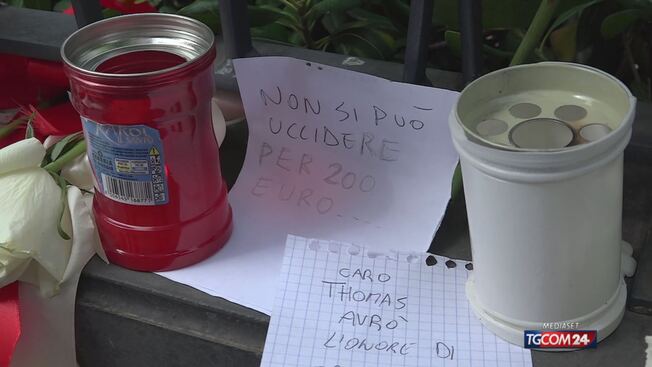 NON SI PUÒ
UCCIDERE
PER 200
EURO....
CARO
THOMAS
AVRÒ
L'ONORE DI
MEDIASET
TGCOM24